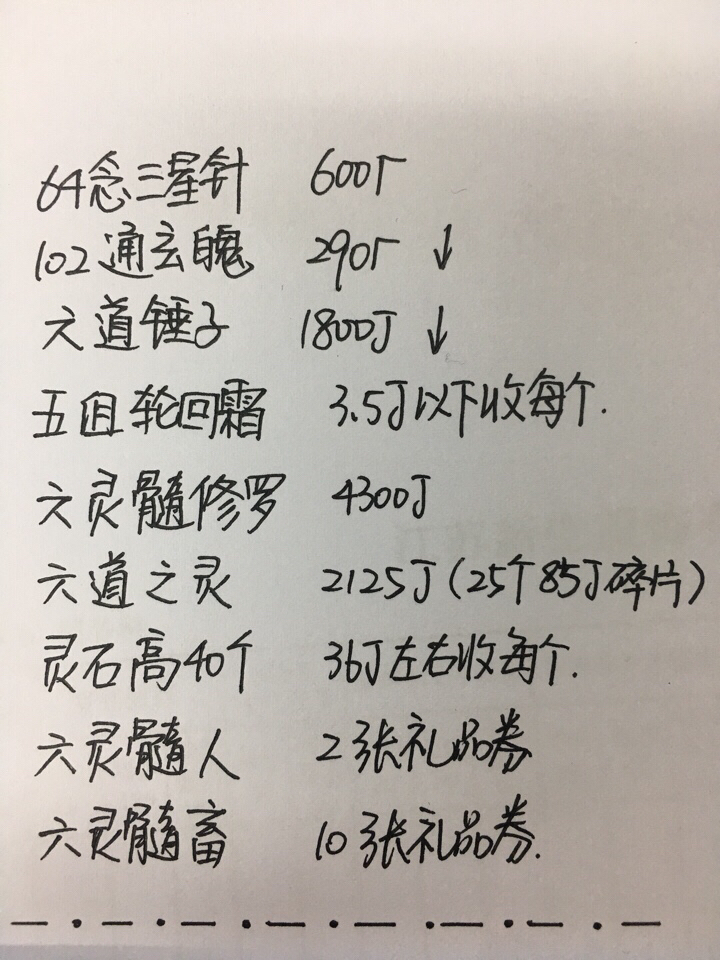 64念三星针 600r
102通玄魄 290r ↓
六道锤子 1800J ↓
五组轮回霜 3.5J以下收每个.
六灵髓修罗 4300J
六道之灵 2125J(25个85J碎片)
灵石高40个 36J左右收每个.
六灵髓人 2张礼品券
六灵髓畜 10张礼品券.